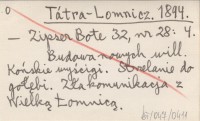 Tátra-Lomnicz. 1894.
– Zipser Bote 32, nr 28: 4.
Budowa nowych will.
Końskie wyścigi. Strzelanie do
gołębi. Zła komunikacja z
Wielką Łomnicą.